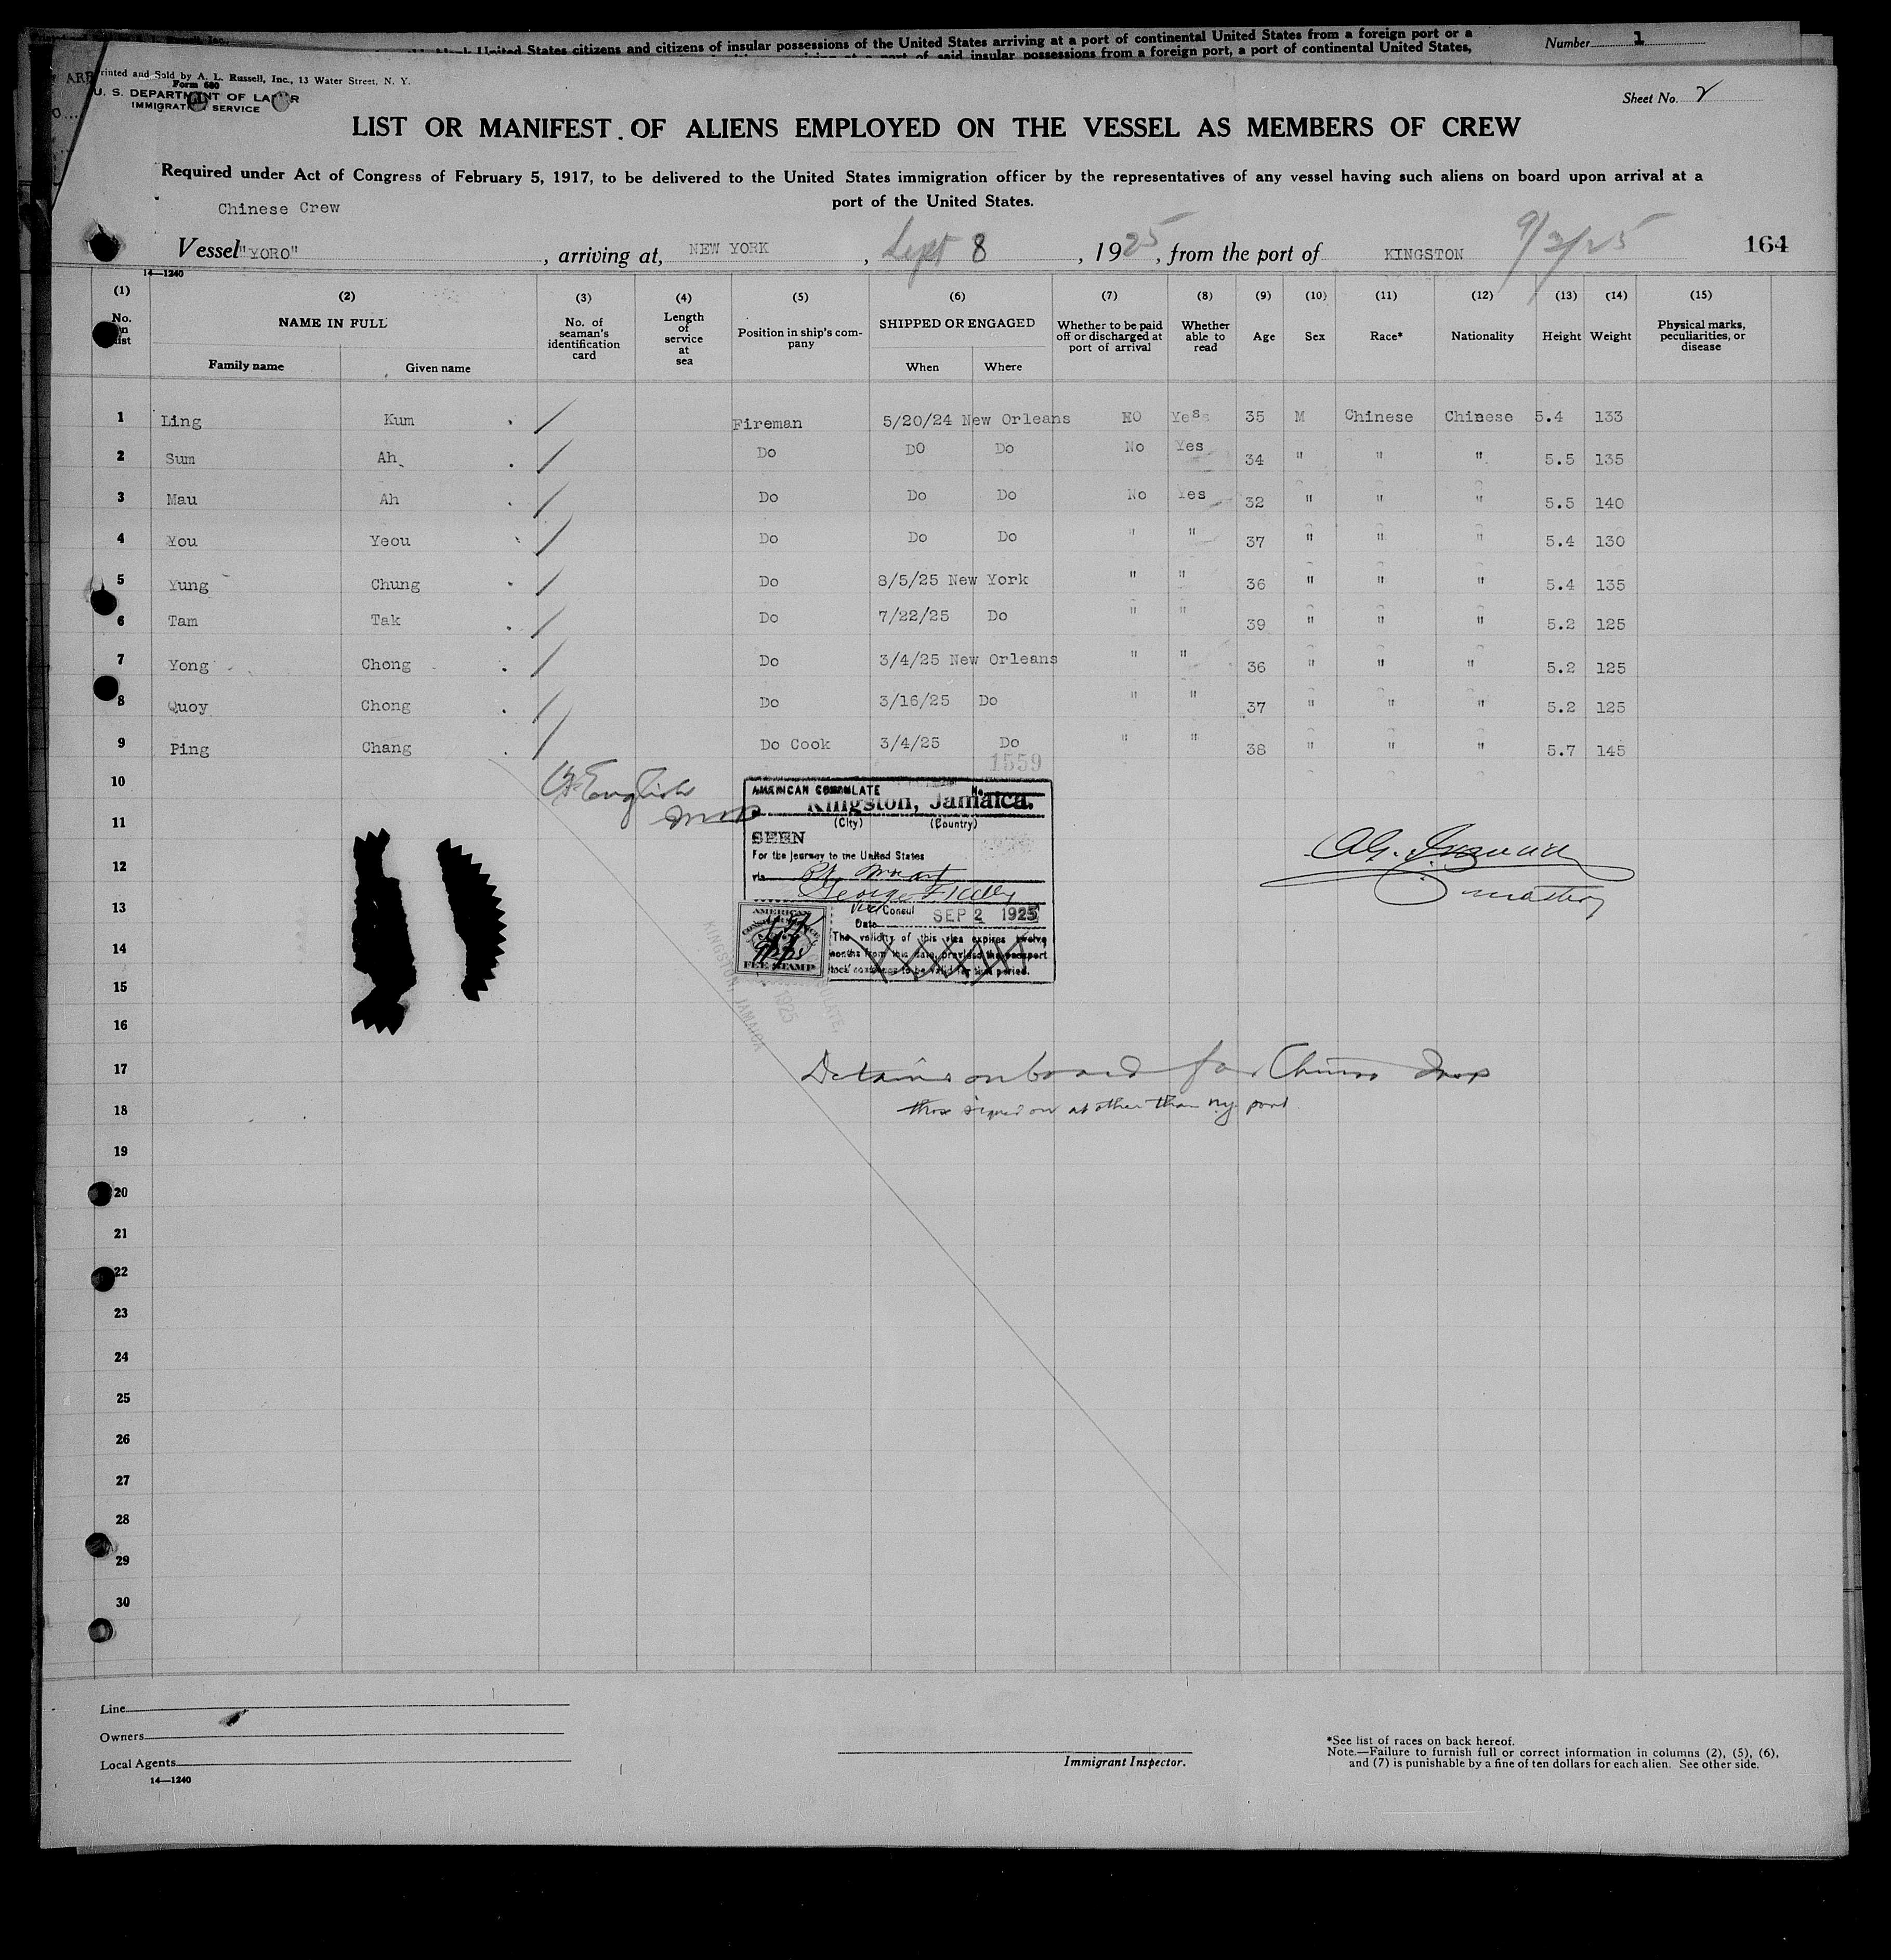 United States citizens and citizens of insular possessions of the United States arriving at a port of continental United States from a foreign port or a
at a port of said insular possessions from a foreign port, a port of continental United States,
Number 1
Printed and Sold by A. L. Russell, Inc., 13 Water Street, N. Y.
Form 680
U. S. DEPARTMENT OF LABOR
IMMIGRATION SERVICE
Sheet No. 2
LIST OR MANIFEST OF ALIENS EMPLOYED ON THE VESSEL AS MEMBERS OF CREW
Required under Act of Congress of February 5, 1917, to be delivered to the United States immigration officer by the representatives of any vessel having such aliens on board upon arrival at a
port of the United States.
Chinese Crew
Vessel "YORO", arriving at, NEW YORK, Sept 8, 1925, from the port of KINGSTON 9/2/25 164
14—1240
(1) (2) (3) (4) (5) (6) (7) (8) (9) (10) (11) (12) (13) (14) (15)
No. on list NAME IN FULL Family name Given name No. of seaman's identification card Length of service at sea Position in ship's company SHIPPED OR ENGAGED When Where Whether to be paid off or discharged at port of arrival Whether able to read Age Sex Race* Nationality Height Weight Physical marks, peculiarities, or disease
1 Ling Kum Fireman 5/20/24 New Orleans NO Yes 35 M Chinese Chinese 5.4 133
2 Sum Ah Do DO Do No Yes 34 " " " 5.5 135
3 Mau Ah Do Do Do No Yes 32 " " " 5.5 140
4 You Yeou Do Do Do " " 37 " " " 5.4 130
5 Yung Chung Do 8/5/25 New York " " 36 " " " 5.4 135
6 Tam Tak Do 7/22/25 Do " " 39 " " " 5.2 125
7 Yong Chong Do 3/4/25 New Orleans " " 36 " " " 5.2 125
8 Quoy Chong Do 3/16/25 Do " " 37 " " " 5.2 125
9 Ping Chang Do Cook 3/4/25 Do " " 38 " " " 5.7 145
1559
10
English
AMERICAN CONSULATE No.
Kingston, Jamaica.
(City) (Country)
11
SEEN
For the journey to the United States
12
via
George F. Kelly
master
13
Vice Consul SEP 2 1925
Date
AMERICAN
FEE STAMP
The validity of this visa expires twelve
months from this date, provided the passport
continues to be valid for that period.
14
15
KINGSTON, JAMAICA
1925
16
17 Detained on board for Chinese Insp
18 those signed on at other than N.Y. port
19
20
21
22
23
24
25
26
27
28
29
30
Line
Owners
Local Agents
14—1240
Immigrant Inspector.
*See list of races on back hereof.
Note.—Failure to furnish full or correct information in columns (2), (5), (6),
and (7) is punishable by a fine of ten dollars for each alien. See other side.